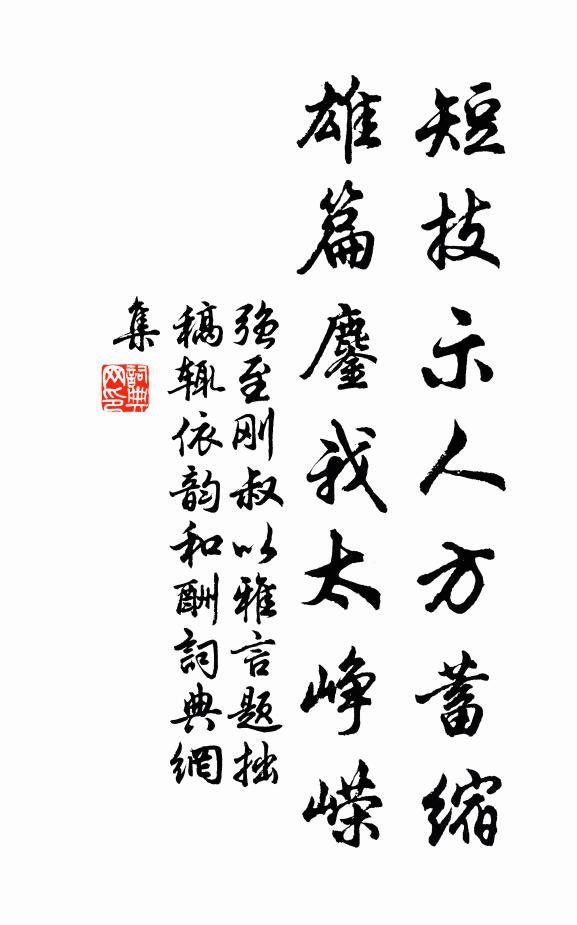 短技示人方蓄縮
雄篇鏖我太峥嵘
强至刚叔以雅言题拙
稿辄依韵和酬詞典網
集
詞典
网印